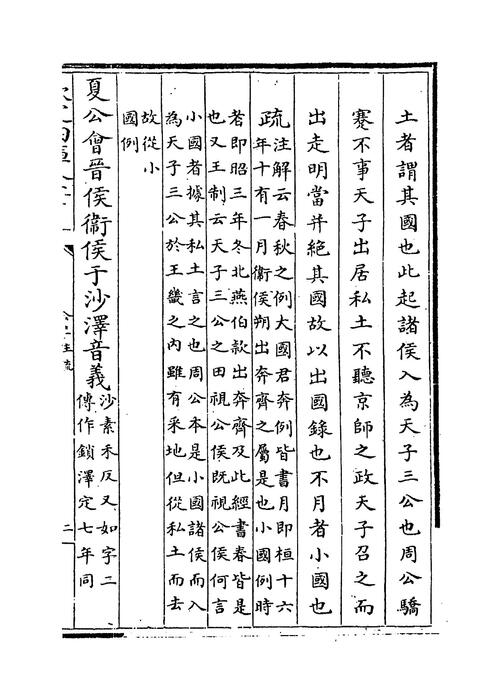 土者謂其國也此起諸侯入為天子三公也周公驕
蹇不事天子出居私土不聽京師之政天子召之而
出走明當并絶其國故以出國錄也不月者小國也
疏
注解云春秋之例大國君奔例皆書月即桓十六
年十有一月衛侯朔出奔齊之屬是也小國例時
者即昭三年冬北燕伯款出奔齊及此經書春皆是
也又王制云天子三公之田視公侯既視公侯何言
小國者據其私土言之也周公本是小國諸侯而入
為天子三公於王畿之內雖有采地但從私土而去
故從小
國例
夏公會晉侯衛侯于沙澤音義
沙素禾反又如字二
傳作鎖澤定七年同
二